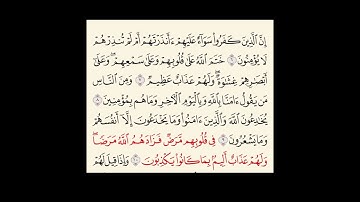 إِنَّ ٱلَّذِينَ كَفَرُوا۟ سَوَآءٌ عَلَيْهِمْ ءَأَنذَرْتَهُمْ أَمْ لَمْ تُنذِرْهُمْ
لَا يُؤْمِنُونَ ۝٦ خَتَمَ ٱللَّهُ عَلَىٰ قُلُوبِهِمْ وَعَلَىٰ سَمْعِهِمْ ۖ وَعَلَىٰٓ
أَبْصَٰرِهِمْ غِشَٰوَةٌ ۖ وَلَهُمْ عَذَابٌ عَظِيمٌ ۝٧ وَمِنَ ٱلنَّاسِ
مَن يَقُولُ ءَامَنَّا بِٱللَّهِ وَبِٱلْيَوْمِ ٱلْءَاخِرِ وَمَا هُم بِمُؤْمِنِينَ ۝٨
يُخَٰدِعُونَ ٱللَّهَ وَٱلَّذِينَ ءَامَنُوا۟ وَمَا يَخْدَعُونَ إِلَّآ أَنفُسَهُمْ
وَمَا يَشْعُرُونَ ۝٩ فِى قُلُوبِهِم مَّرَضٌ فَزَادَهُمُ ٱللَّهُ مَرَضًا ۖ
وَلَهُمْ عَذَابٌ أَلِيمٌۢ بِمَا كَانُوا۟ يَكْذِبُونَ ۝١٠ وَإِذَا قِيلَ لَهُمْ